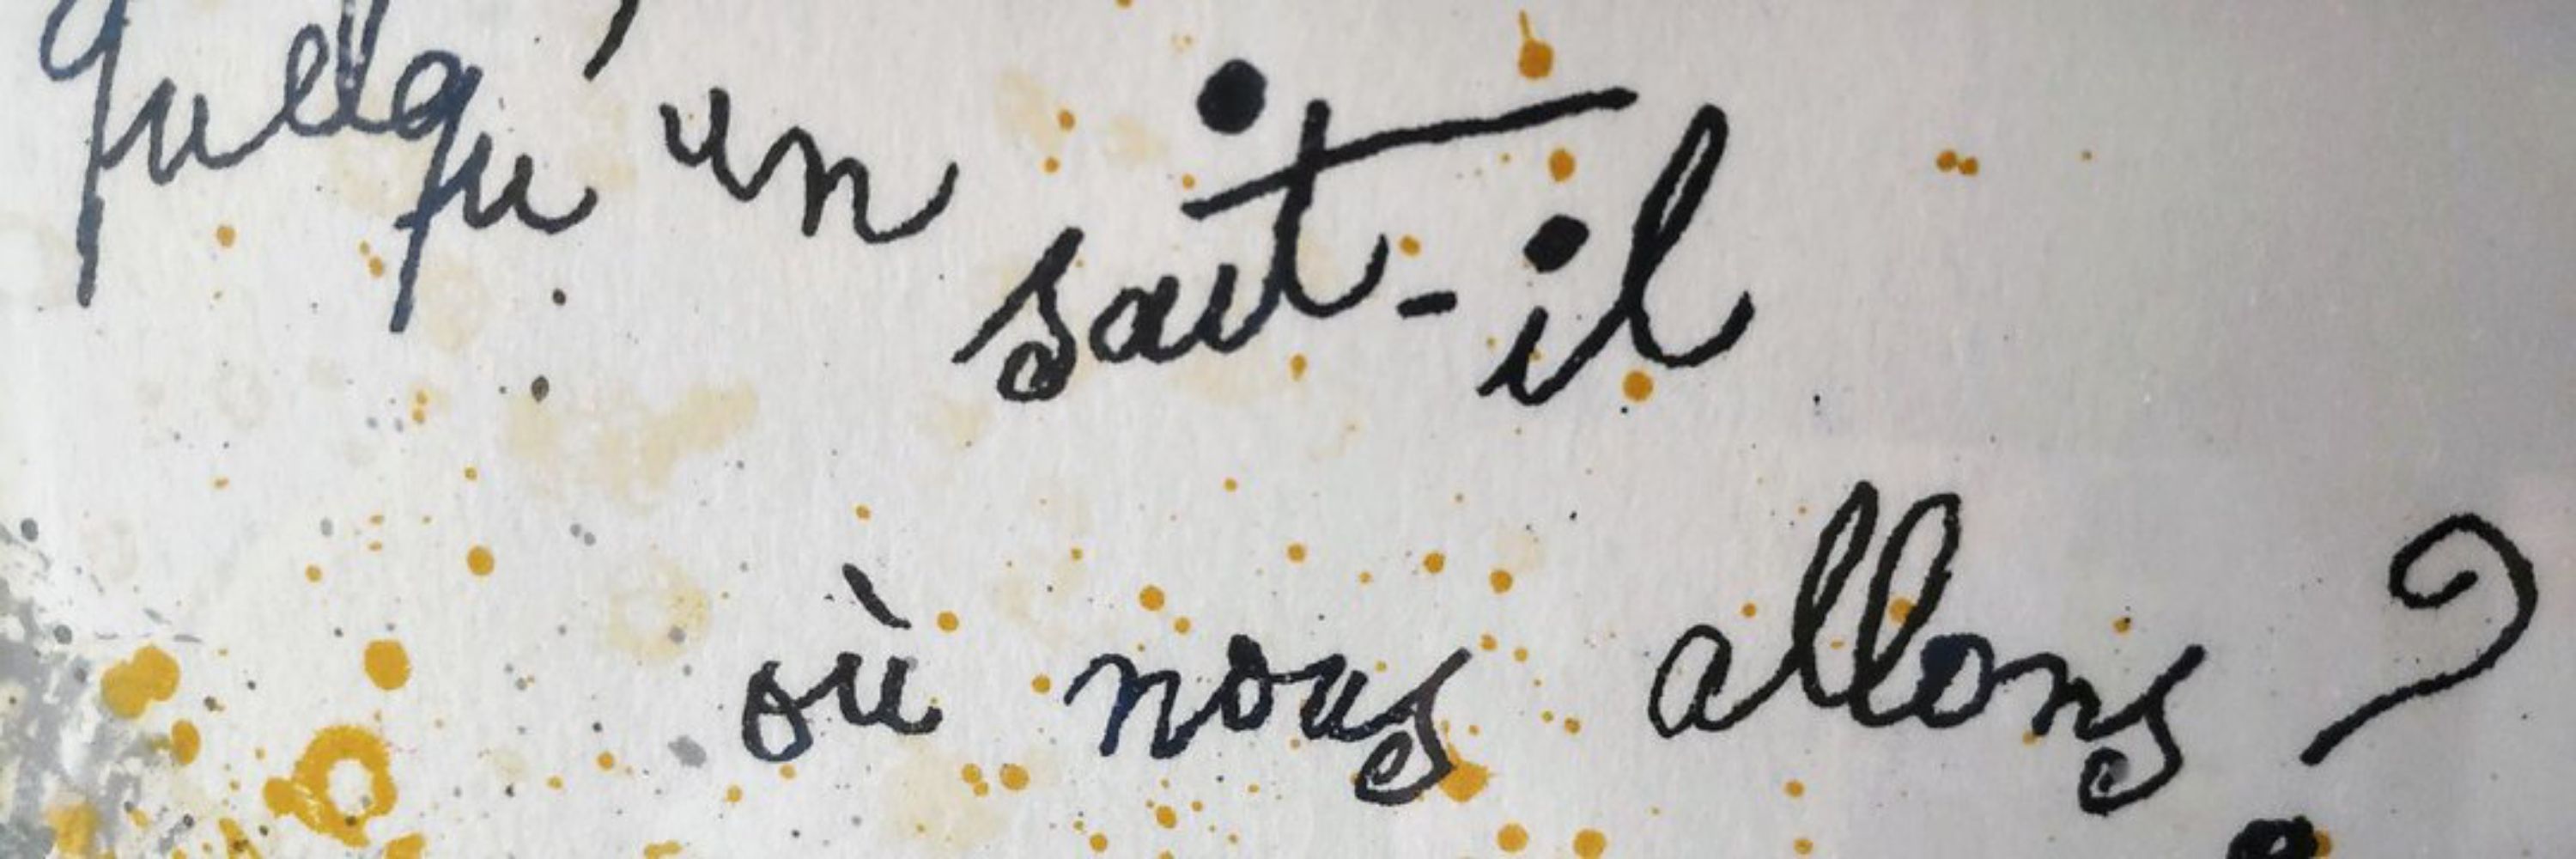 Quelqu'un
sait-il
où nous allons ?